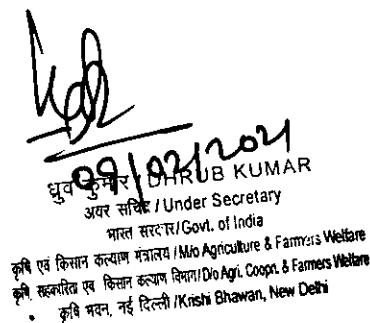 09/02/2021
ध्रुव कुमार / DHRUB KUMAR
अवर सचिव / Under Secretary
भारत सरकार/Govt. of India
कृषि एवं किसान कल्याण मंत्रालय / M/o Agriculture & Farmers Welfare
कृषि, सहकारिता एवं किसान कल्याण विभाग/D/o Agri. Coopn. & Farmers Welfare
कृषि भवन, नई दिल्ली /Krishi Bhawan, New Delhi